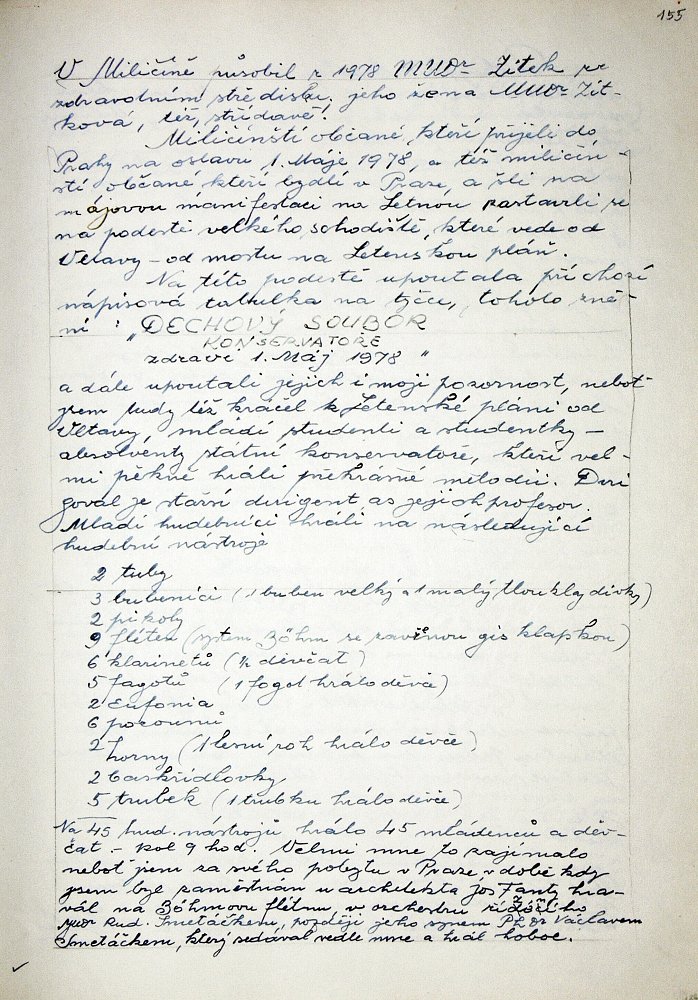 155
V Miličíně působil r 1978 MUDr Zítek ve
zdravotním středisku, jeho žena MUDr Zít-
ková, též, střídavě.
Miličínští občané, kteří přijeli do
Prahy na oslavu 1. Máje 1978, a též miličín-
stí občané kteří bydlí v Praze, a šli na
májovou manifestaci na Letnou zastavili se
na podestě velkého schodiště, které vede od
Vltavy – od mostu na Letenskou pláň.
Na této podestě upoutala příchozí
nápisová tabulka na tyčce, tohoto zně-
ní: "DECHOVÝ SOUBOR
KONSERVATOŘE
zdraví 1. Máj 1978"
a dále upoutali jejich i moji pozornost, neboť
jsem tudy též kráčel k Letenské pláni od
Vltavy, mládí studenti a studentky –
absolventy státní konservatoře, kteří vel-
mi pěkně hráli překrásné melodii. Diri
goval je starší dirigent as jejich profesor.
Mladí hudebníci hráli na následující
hudební nástroje
2 tuby
3 bubeníci (1 buben velký a 1 malý tloukly dívky)
2 pikoly
9 fléten (systém Böhm se zavěrnou gis klapkou)
6 klarinetů (½ děvčat)
5 fagotů (1 fogot hrálo děvče)
2 Eufonia
6 pozounů
2 horny (1 lesní roh hrálo děvče)
2 baskřídlovky
5 trubek (1 trubku hrálo děvče)
Na 45 hud. nástrojů hrálo 45 mládenců a děv-
čat – kol 9 hod. Velmi mne to zajímalo
neboť jsem za svého pobytu v Praze v době kdy
jsem byl zaměstnán u architekta Jos Fanty hra-
vál na Böhmovu flétnu v orchestru
Rud. Smetáčkem, později jeho synem PhDr Václavem
Smetáčkem, který sedával vedle mne a hrál hoboe.